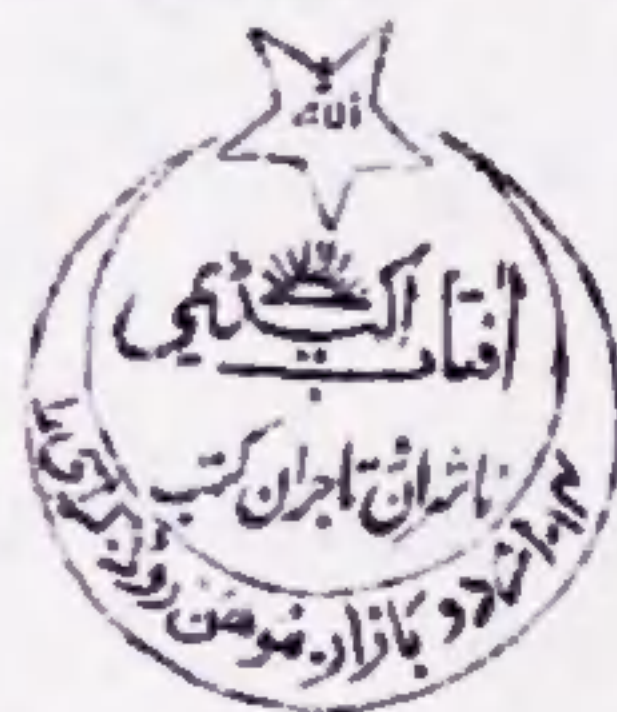 الله
آفتاب اکیڈیمی
ناشران و تاجران کتب
اردو بازار۔ موہن روڈ۔ کراچی